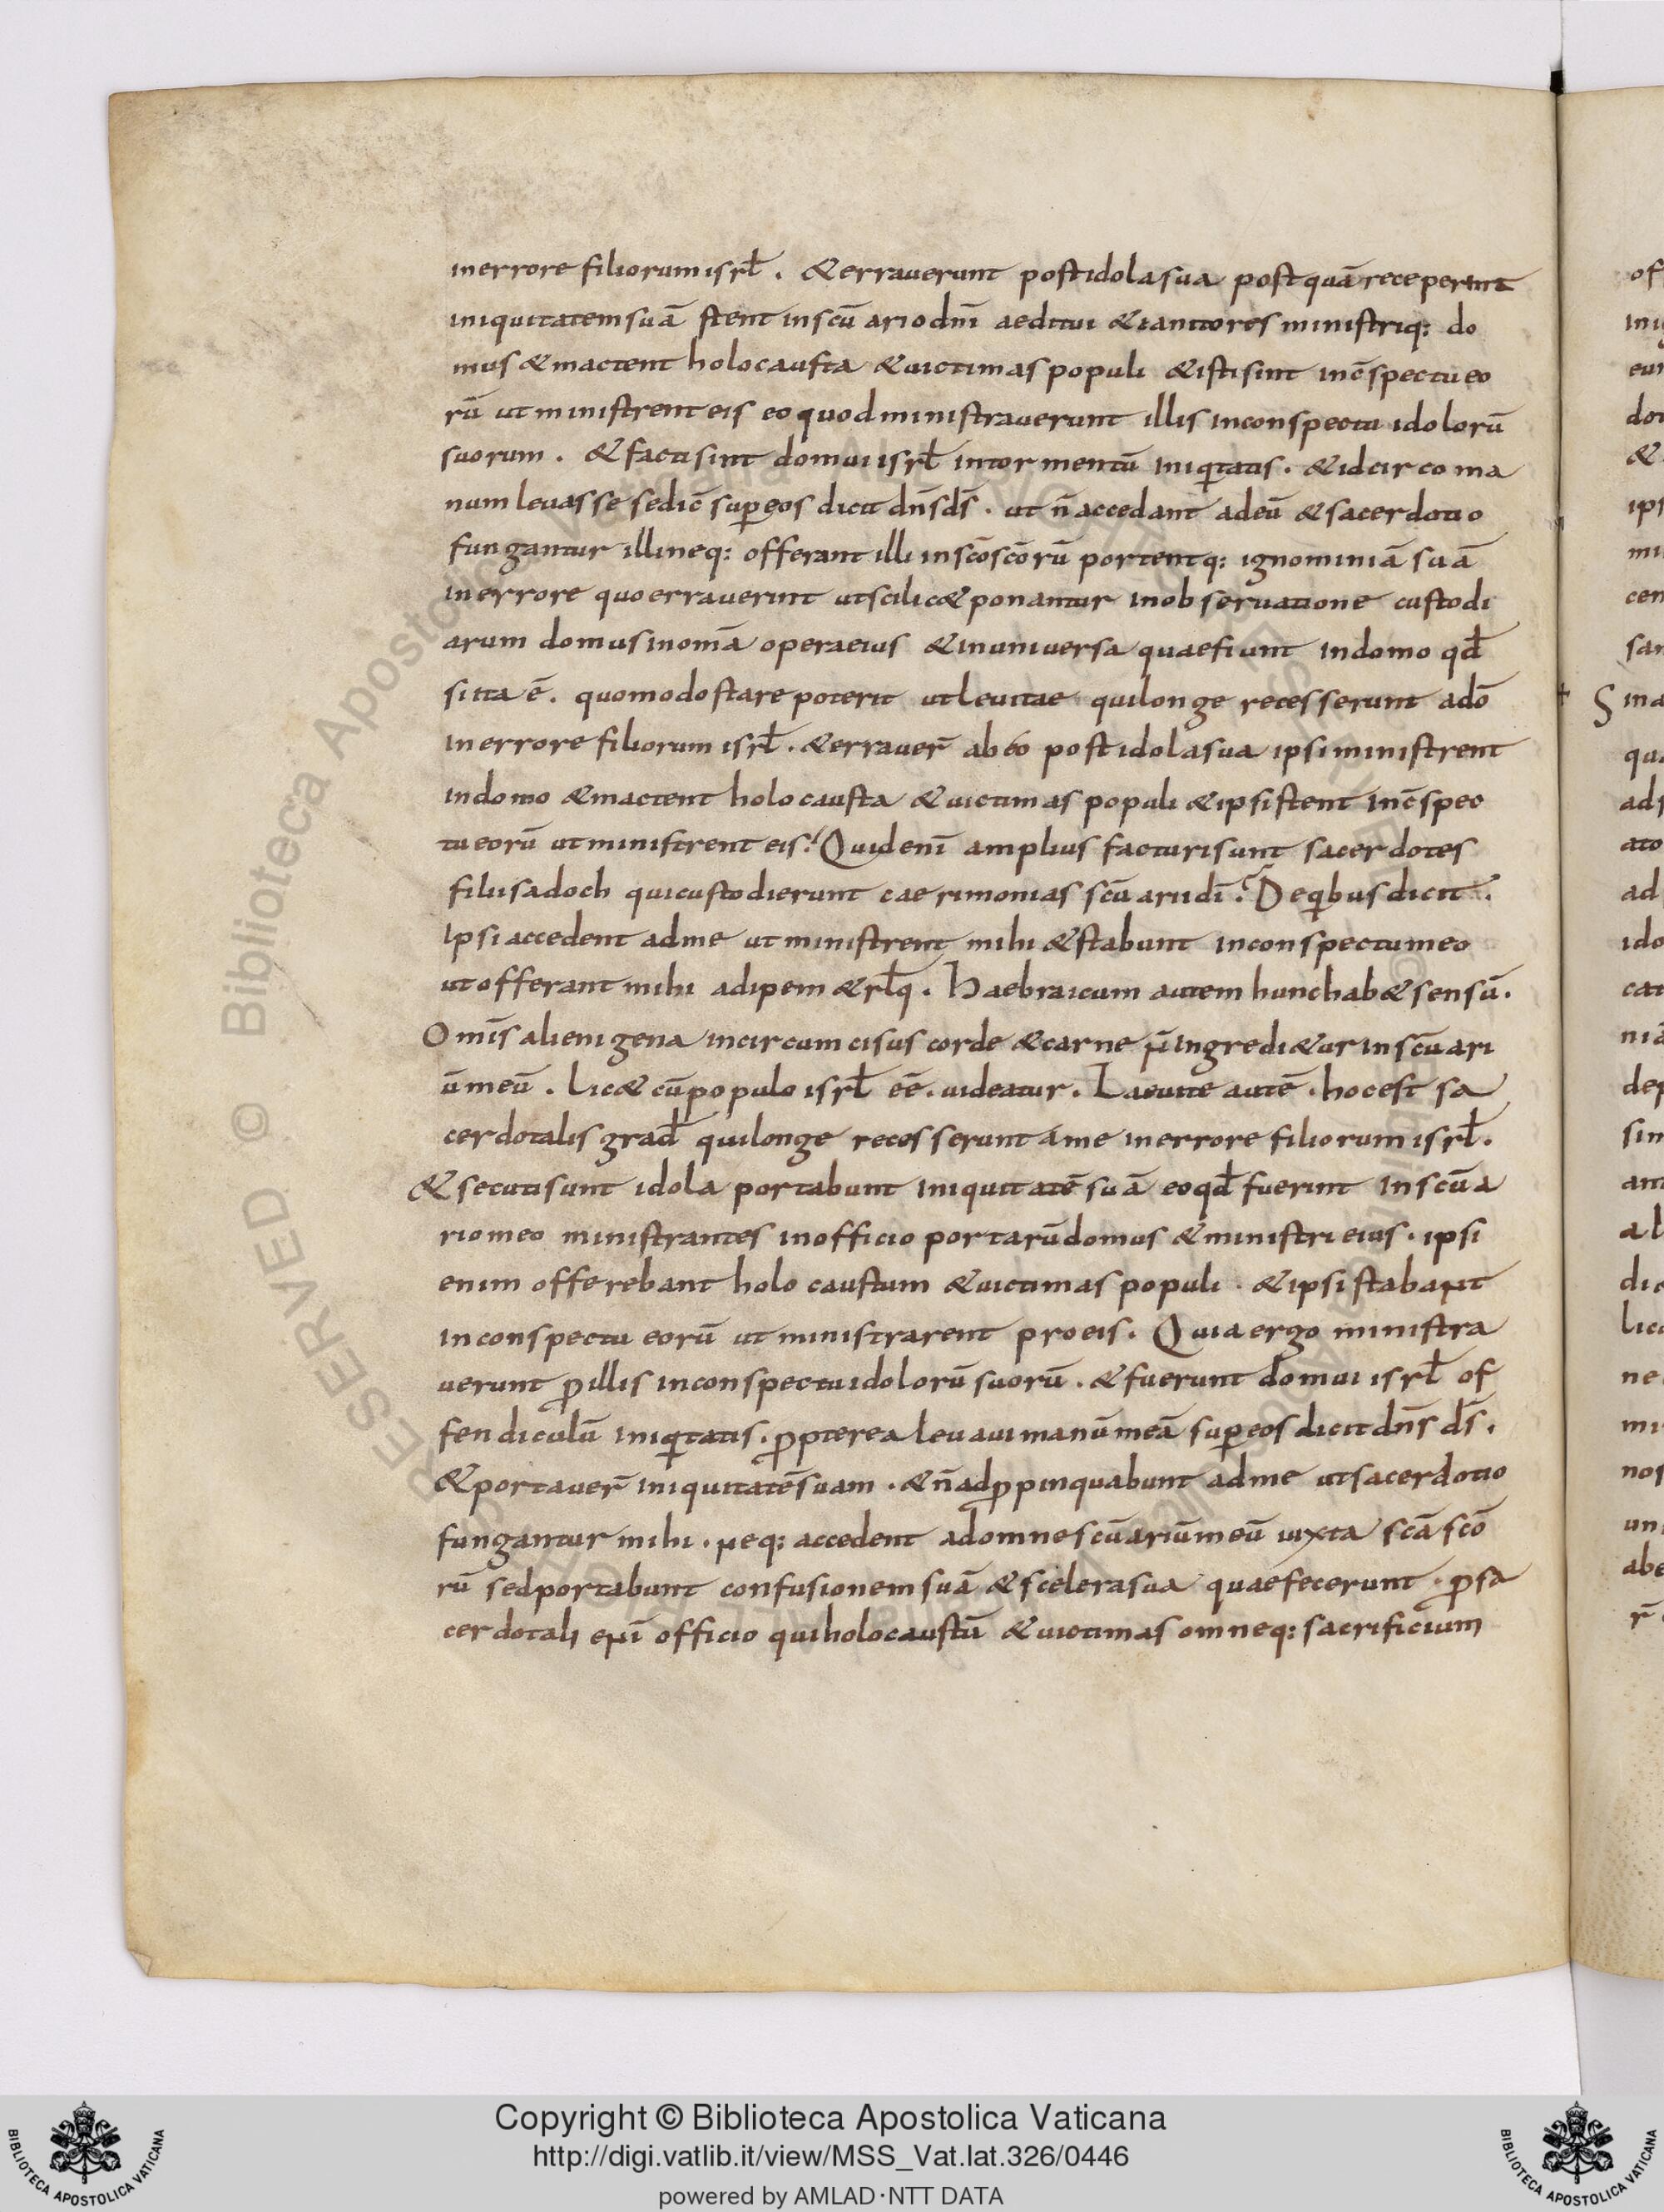 in errore filiorum isrł . & erraverunt post idola sua postquā receperint
iniquitatem suā stent in scūario dnī aeditui & ianitores ministriq: do
mus & mactent holocausta & victimas populi & isti sint in c̄spectu eo
rū ut ministrent eis eo quod ministraverunt illis in conspectu idolorū
suorum . & facti sint domui isrł in tormentū iniqitatis . & idcirco ma
num levasse se dic̄ sup eos dicit dn̄s ds̄ . ut n̄ accedant ad eū & sacerdotio
fungantur illi neq: offerant illi in scō scōrū portentq: ignominiā suā
in errore quo erraverint ut scilic& ponantur in observatione custodi
arum domus in omā opera eius & in universa quae fiunt in domo qd̄
si ita ē . quomodo stare poterit ut levitae qui longe recesserunt a dō
in errore filiorum isrł . & erraver̄ ab eo post idola sua ipsi ministrent
in domo & mactent holocausta & victimas populi & ipsi stent in c̄spec
tu eorū ut ministrent eis? Quid enī amplius facturi sunt sacerdotes
filii sadoch qui custodierunt caerimonias scūarii dī? De qibus dicit .
Ipsi accedent ad me ut ministrent mihi & stabunt in conspectu meo
ut offerant mihi adipem & rłq . Haebraicum autem hunc hab& sensū .
Omīs alienigena incircumcisus corde & carne n̄ ingredi&ur in scūari
ū meū . Lic& cū populo isrł ēe . videatur . Laevite autē . hoc est sa
cerdotalis grad̄ qui longe recesserunt a me in errore filiorum isrł .
& secuti sunt idola portabunt iniquitatē suā eo qd̄ fuerint in scūa
rio meo ministrantes in officio portarū domus & ministri eius . ipsi
enim offerebant holocaustum & victimas populi . & ipsi stabant
in conspectu eorū ut ministrarent pro eis . Quia ergo ministra
verunt p illis in conspectu idolorū suorū . & fuerunt domui isrł of
fendiculū iniqitatis . ppterea levavi manū meā sup eos dicit dn̄s ds̄ .
& portaver̄ iniquitatē suam . & n̄ adppinquabunt ad me ut sacerdotio
fungantur mihi . neq: accedent ad omne scūariū meū iuxta scā scō
rū sed portabunt confusionem suā & scelera sua quae fecerunt . p sa
cerdotali enī officio qui holocaustū & victimas omneq: sacrificium
Copyright © Biblioteca Apostolica Vaticana
http://digi.vatlib.it/view/MSS_Vat.lat.326/0446
powered by AMLAD·NTT DATA